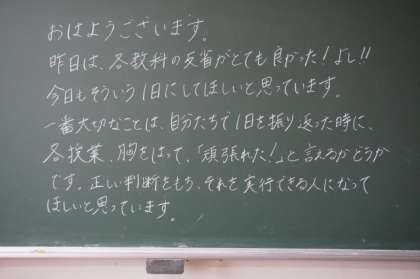 おはようございます。
昨日は、各教科の反省がとても良かった！よし!!
今日もそういう1日にしてほしいと思っています。
一番大切なことは、自分たちで1日を振り返った時に、
各授業、胸をはって、「頑張れた!」と言えるかどうか
です。正しい判断をもち、それを実行できる人になって
ほしいと思っています。